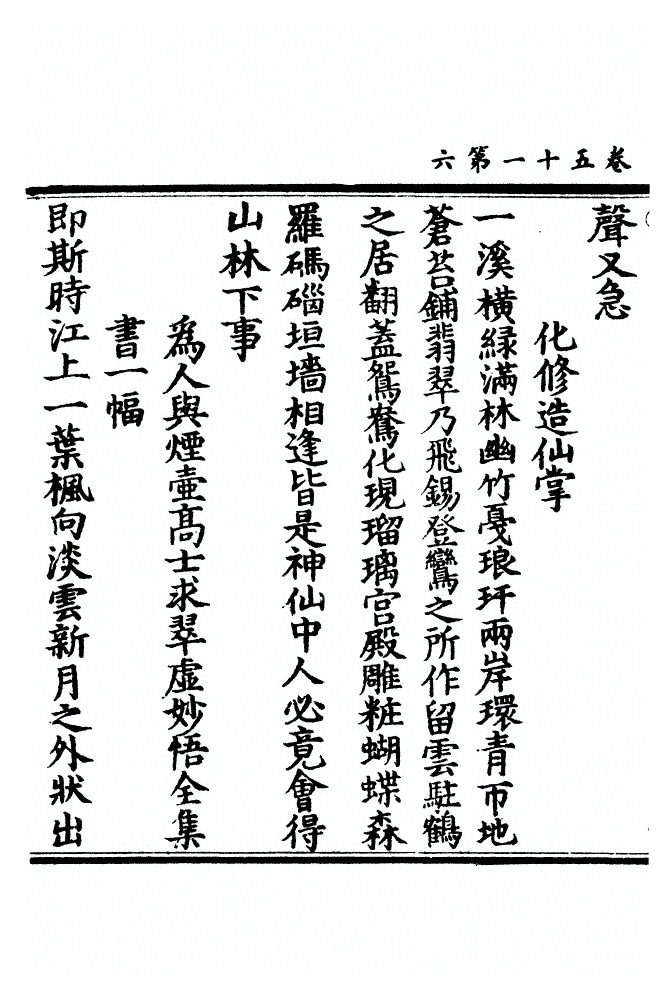 卷五十一第六
聲又急
化修造仙掌
一溪橫綠滿林幽竹戞琅玕兩岸環青帀地
蒼苔鋪翡翠乃飛錫登鸞之所作留雲駐鶴
之居翻蓋鴛鴦化現瑠璃宫殿雕粧蝴蝶森
羅碼碯垣墻相逢皆是神仙中人必竟會得
山林下事
為人與煙壺髙士求翠虛妙悟全集
書一幅
即斯時江上一葉楓向淡雲新月之外狀出